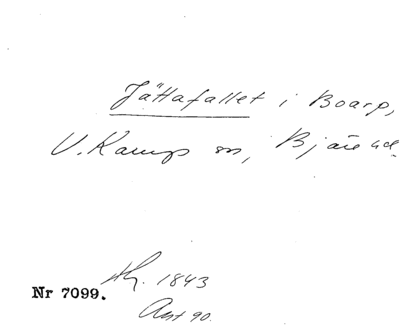 Jättafallet i Boarp,
V. Karup sn, Bjäre hd.
Nr 7099.
1843
90.